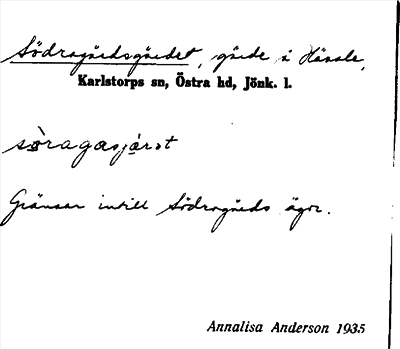 Södragårdsgärdet, gärde i Hässle,
Karlstorps sn, Östra hd, Jönk. l.
Gränsar intill Södragårds ägor.
Annalisa Anderson 1935